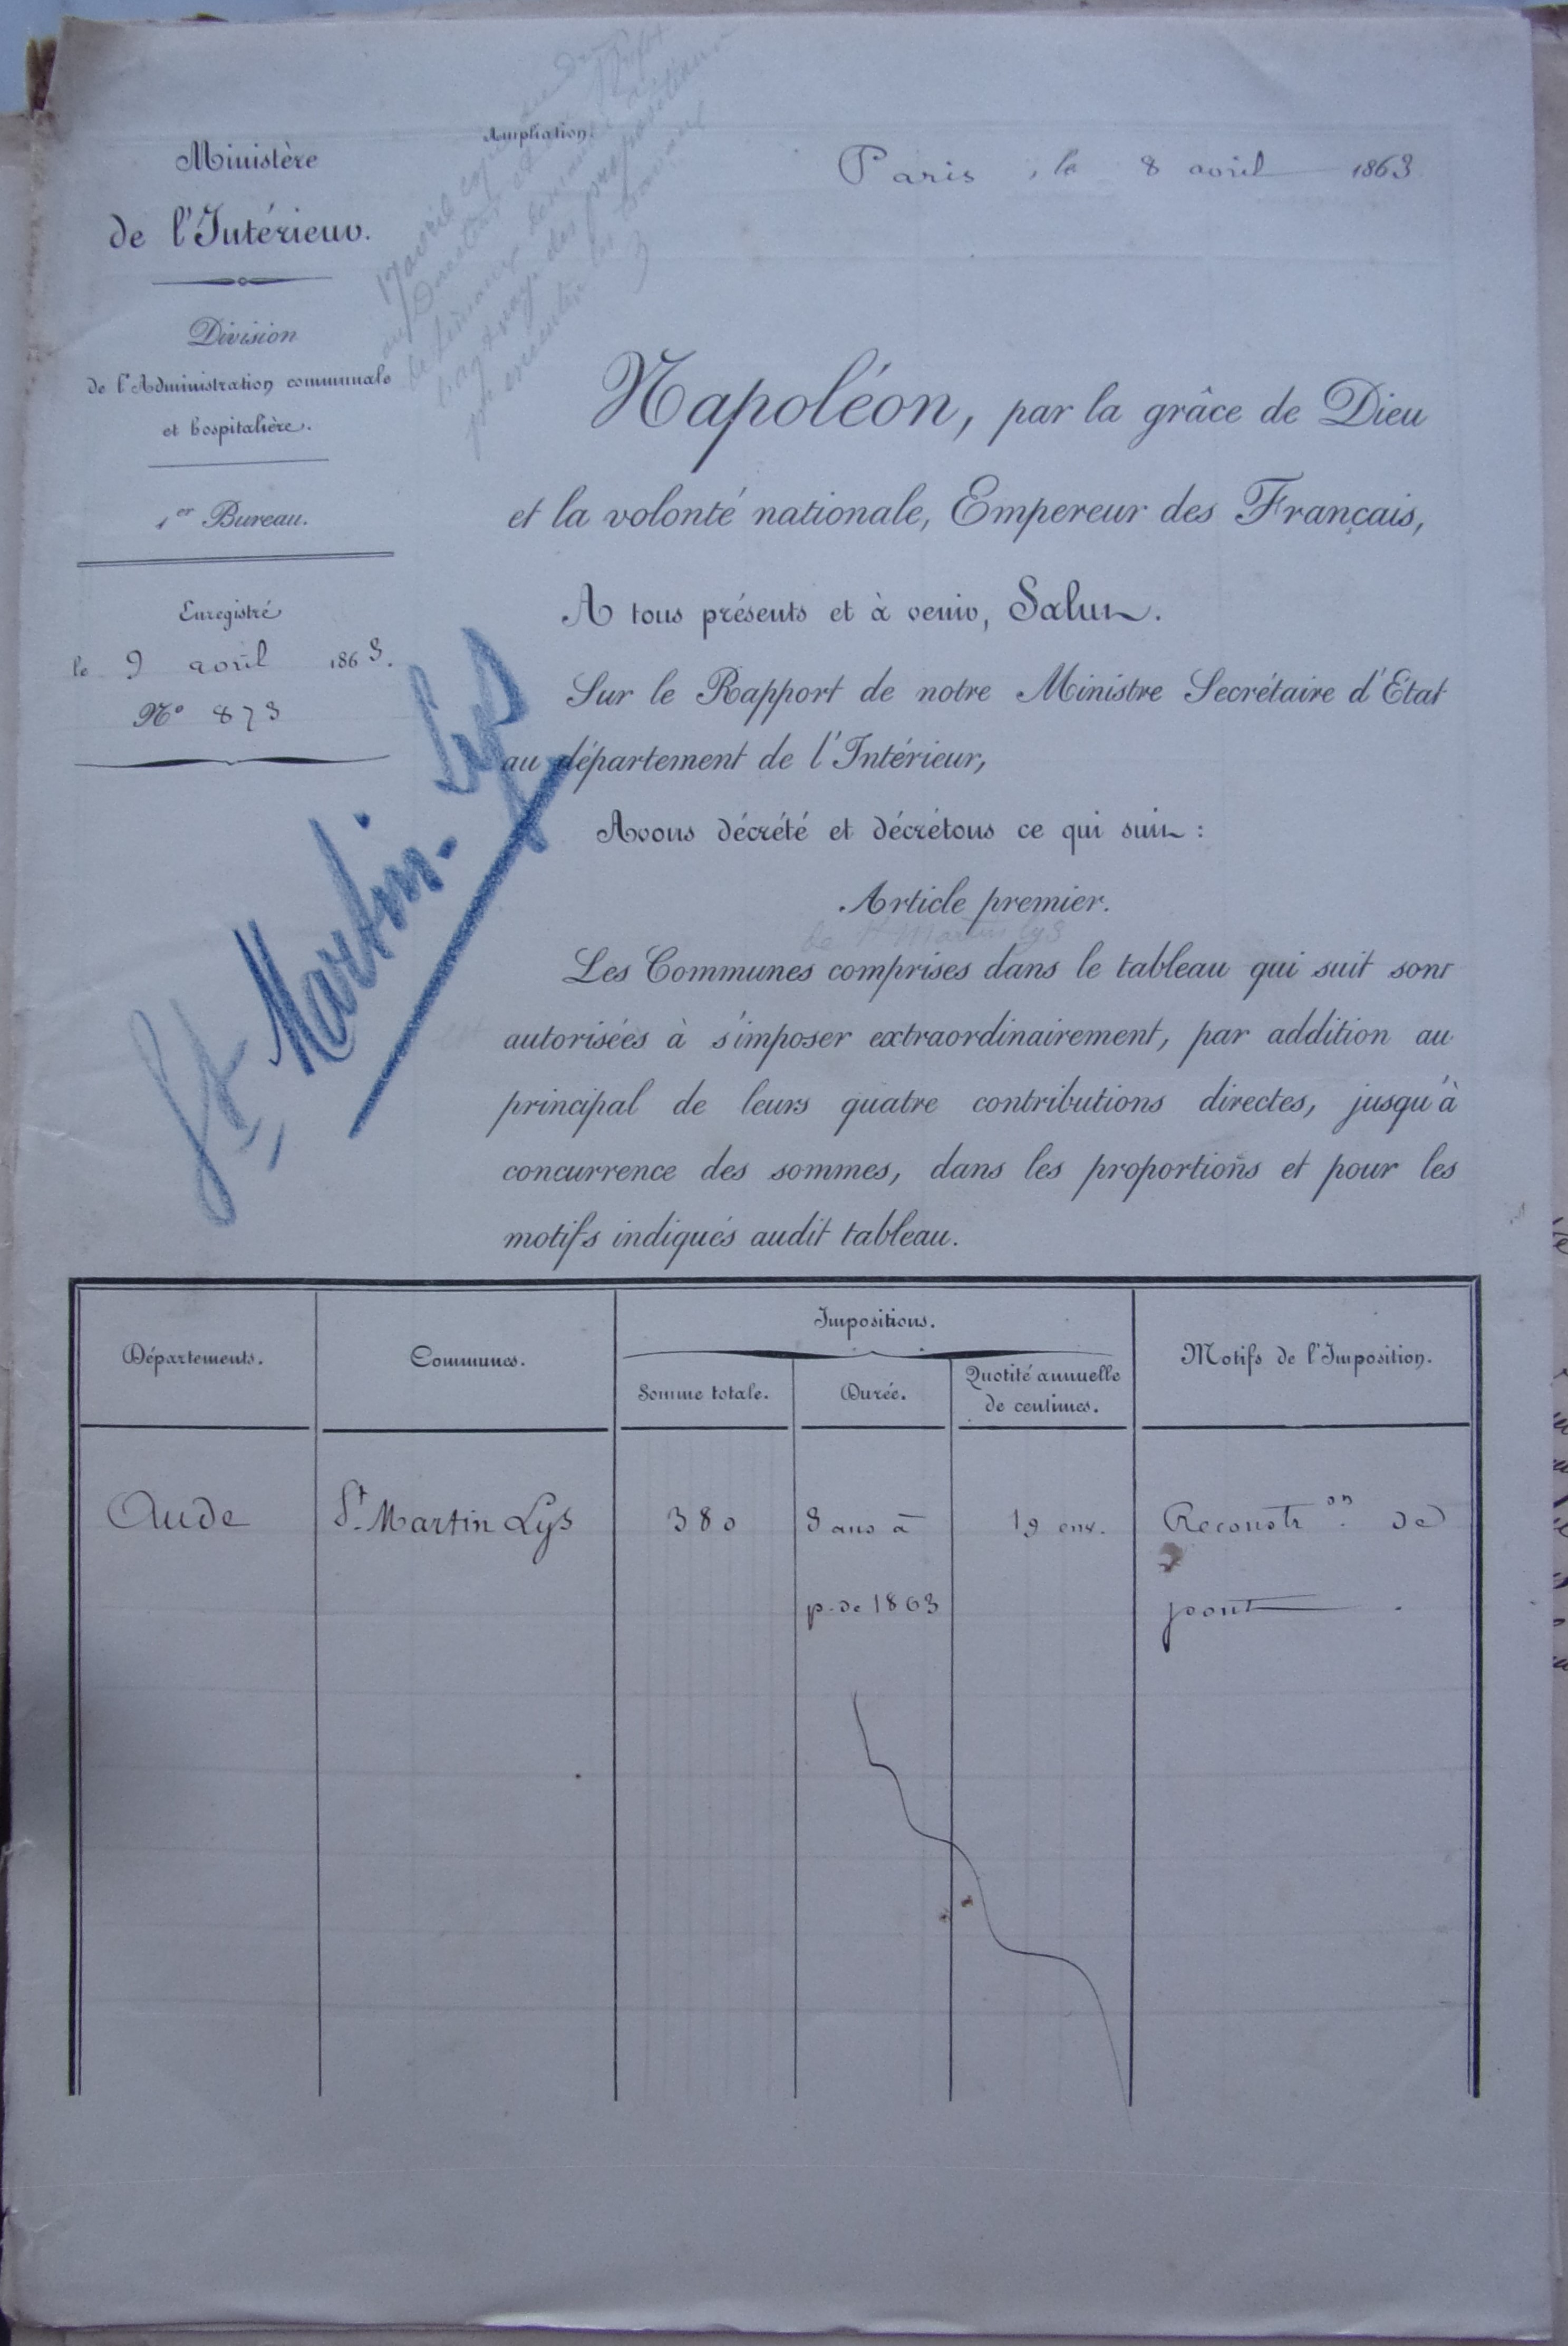 Ministère
de l'Intérieur.
Division
de l'Administration communale
et hospitalière.
1er Bureau.
Enregistré
le 9 avril 1863.
No 873
St Martin-Lys
Ampliation.
17 avril
Paris, le 8 avril 1863
Napoléon, par la grâce de Dieu
et la volonté nationale, Empereur des Français,
A tous présents et à venir, Salut.
Sur le Rapport de notre Ministre Secrétaire d'État
au département de l'Intérieur,
Avons décrété et décrétons ce qui suit :
Article premier.
de St Martin Lys
Les Communes comprises dans le tableau qui suit sont
autorisées à s'imposer extraordinairement, par addition au
principal de leurs quatre contributions directes, jusqu'à
concurrence des sommes, dans les proportions et pour les
motifs indiqués audit tableau.
Départements.
Communes.
Impositions.
Somme totale.
Durée.
Quotité annuelle
de centimes.
Motifs de l'Imposition.
Aude
St Martin Lys
380
3 ans à
p. de 1863
19 env.
Reconstr on. de
pont.